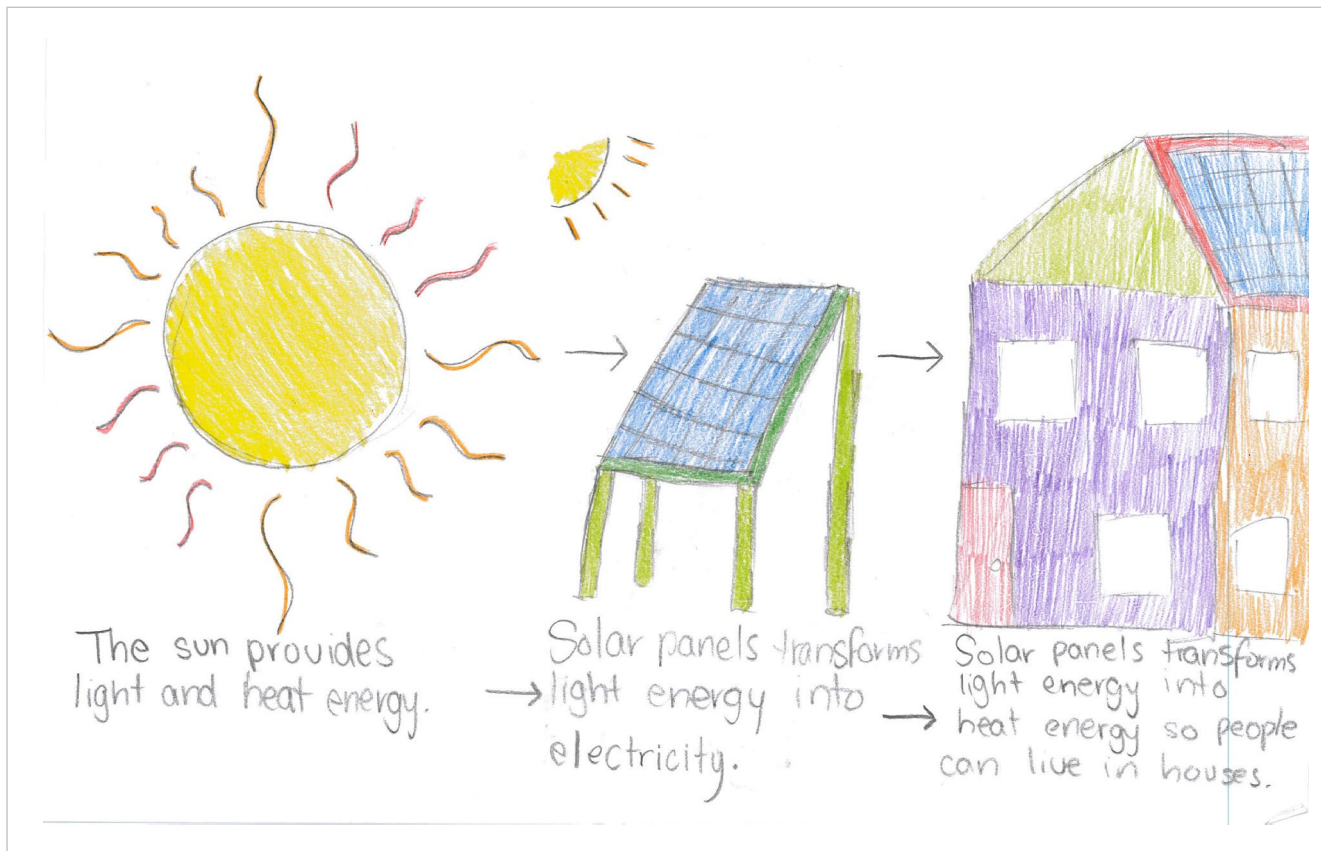 The sun provides
light and heat energy.
Solar panels transforms
light energy into
electricity.
Solar panels transforms
light energy into
heat energy so people
can live in houses.